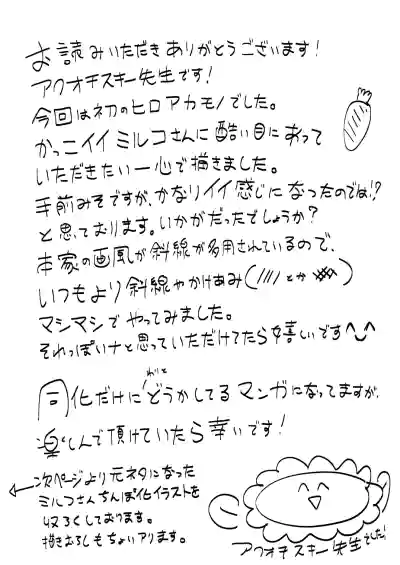 お読みいただきありがとうございます!
アクオチスキー先生です!
今回は初のヒロアカモノでした。
かっこイイミルコさんに酷い目にあって
いただきたい一心で描きました。
手前みそですが、かなりイイ感じになったのでは!?
と思っております。いかがだったでしょうか?
本家の画風が斜線が多用されているので、
いつもより斜線やかけあみ(////とか )
マシマシでやってみました。
それっぽいナと思っていただけてたら嬉しいです
同化だけにどうかしてるマンガになってますが、
わりと
楽しんで頂けていたら幸いです!
次ページより元ネタになった
ミルコさんちんぽ化イラストを
収ろくしております。
描きおろしもちょいアリます。
アクオチスキー先生でした!